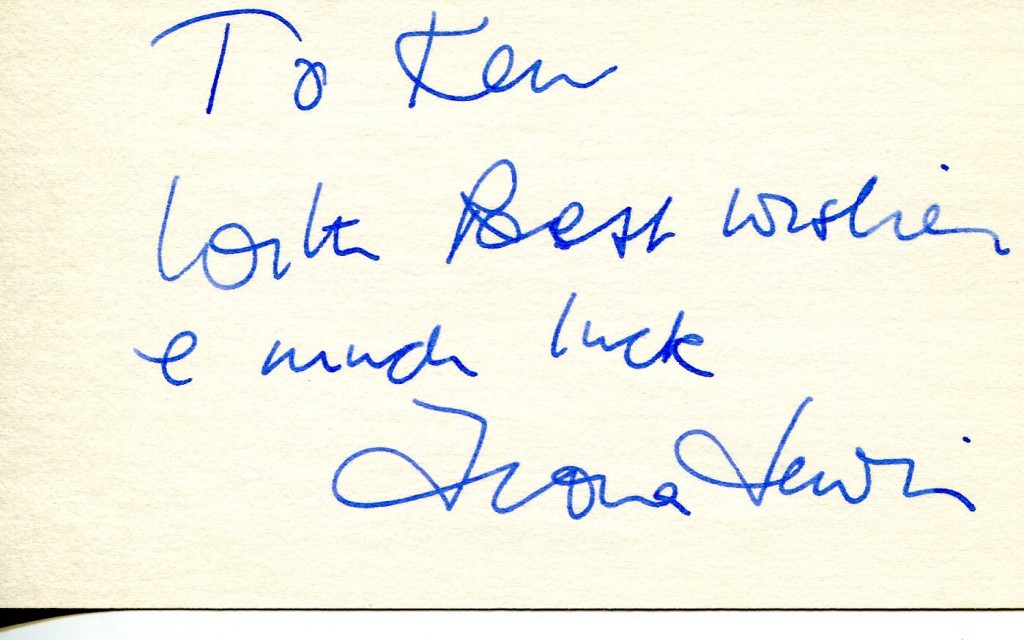 To Ken
With Best wishes
& much luck
Fiona Lewis